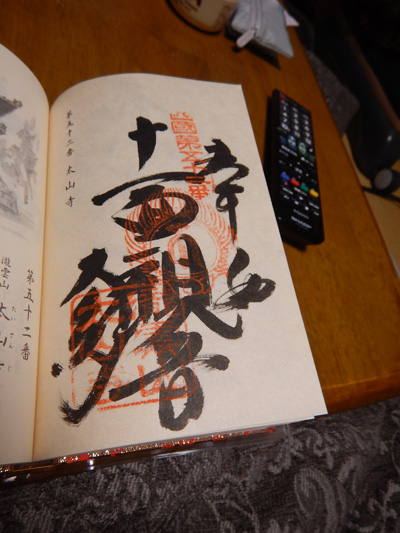 奉納
四國第五十二番
十一面観音
太山寺
第五十二番 太山寺
第五十二番
瀧雲山 太山寺